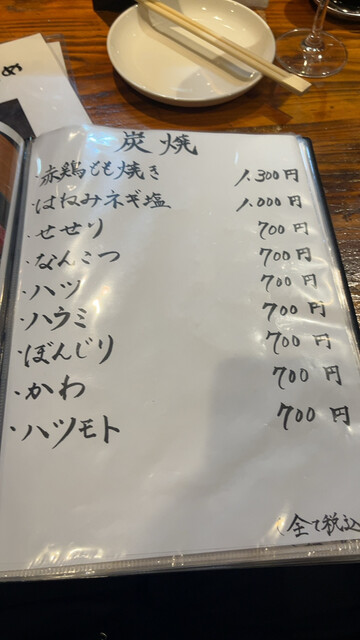 め
炭焼
・赤鶏もも焼き 1,300円
・はねみネギ塩 1,000円
・せせり 700円
・なんこつ 700円
・ハツ 700円
・ハウミ 700円
・ぼんじり 700円
・かわ 700円
・ハツモト 700円
(全て税込